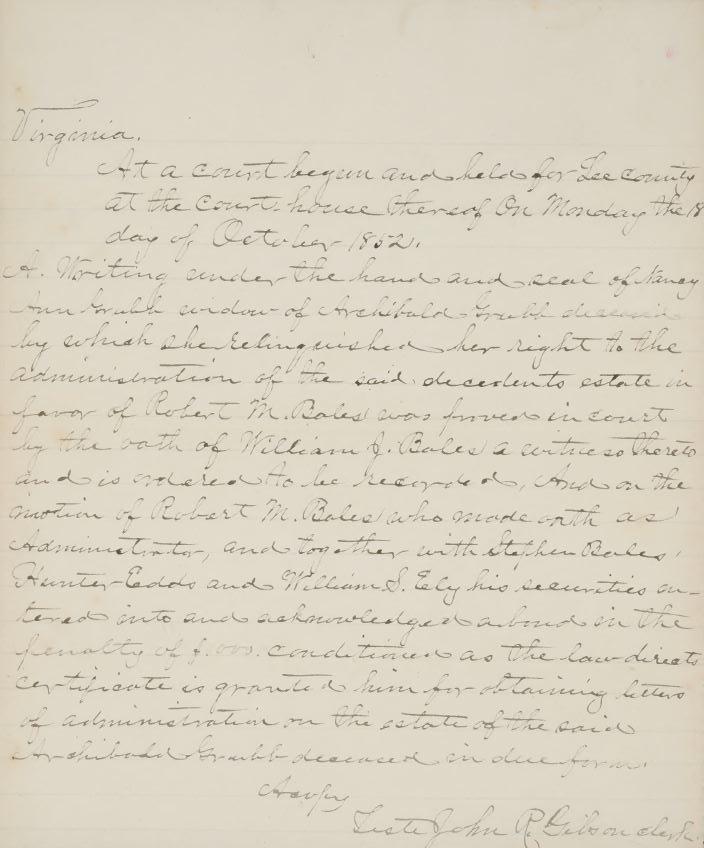 Virginia.
At a court begun and held for Lee county
at the Court-house thereof On Monday the 18
day of October 1852.
A. Writing under the hand and seal of Nancy
Ann Grubb widow of Archibald Grubb deceased
by which she relinquished her right to the
administration of the said decedents estate in
favor of Robert M. Bales was proved in court
by the oath of William J. Bales a witness thereto
and is ordered to be recorded, And on the
motion of Robert M. Bales who made oath as
Administrator, and together with Stephen Bales
Hunter Edds and William S. Ely his securities en-
tered into and acknowledged a bond in the
penalty of conditioned as the law directs
certificate is granted him for obtaining letters
of administration on the estate of the said
Archibald Grubb deceased in due form.
A copy
Teste John R. Gibson clerk